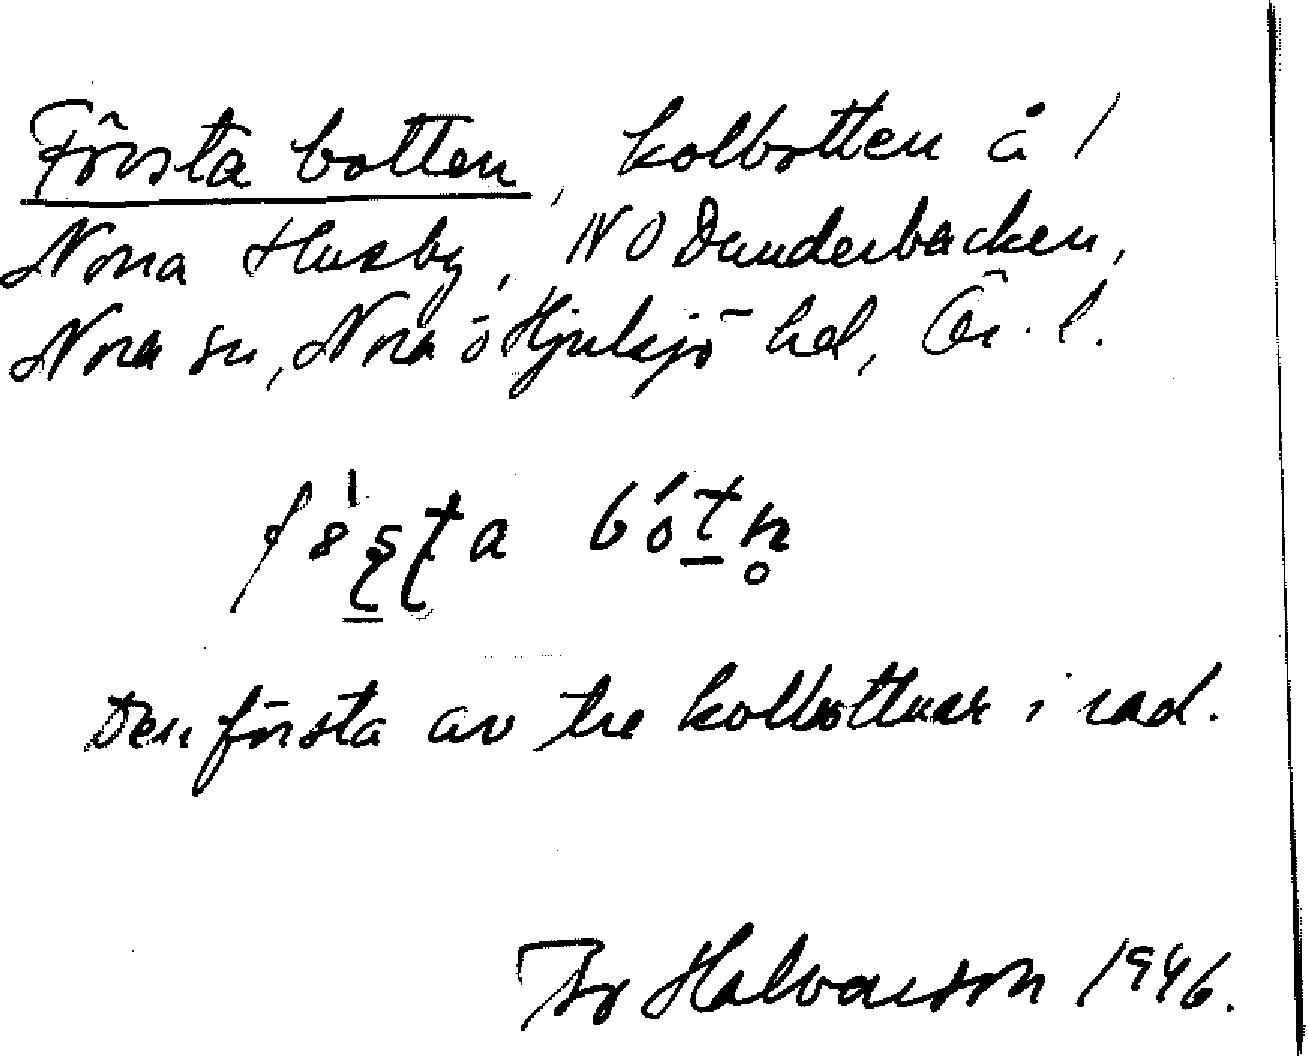 Första botten, kolbotten å 1
Nora Husby, NO Dunderbacken,
Nora sn, Nora ö Hjulsjö hd, Ör. l.
Den första av tre kolbottnar i rad.
Halvarson 1946.